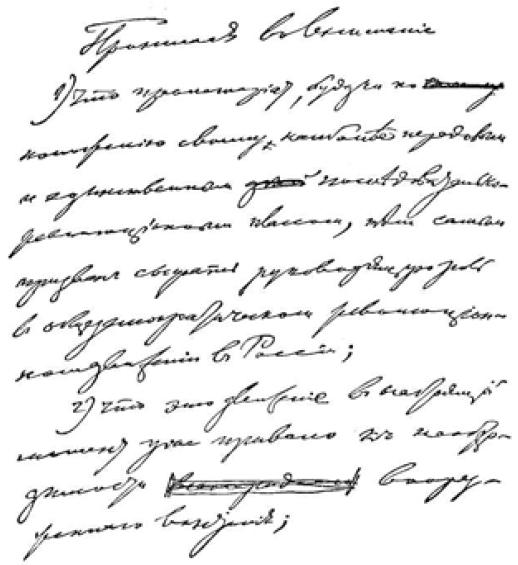 Принимая во вниманіе
1) Что пролетаріат, будучи по
положенію своему, наиболѣе передовым
и единственным послѣдовательно-
революціонным классом, тѣм самым
призван сыграть руководящую роль
в общедемократическом революціон-
ном движеніи в Россіи;
2) что это движеніе в настоящій
момент уже привело къ необхо-
димости воору-
женнаго возстанія;